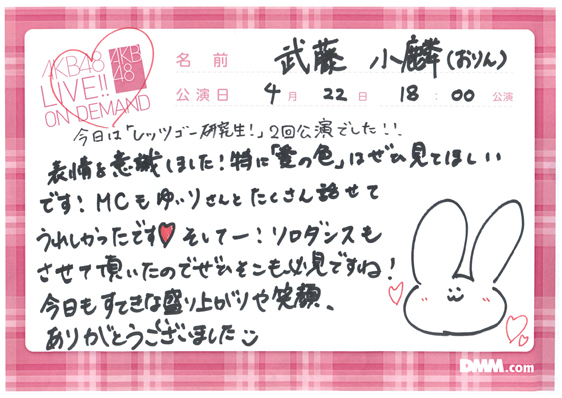 AKB48
LIVE!!
ON DEMAND
AKB
48
名前 武藤 小麟(おりん)
公演日 4月 22日 18:00公演
今日は「レッツゴー研究生!」2回公演でした!!
表情を意識しました!特に「愛の色」はぜひ見てほしい
です!MCもゆいりさんとたくさん話せて
うれしかったです♥そしてー!ソロダンスも
させて頂いたのでぜひそこも必見ですね!
今日もすてきな盛り上がりや笑顔、
ありがとうございました
DMM.com